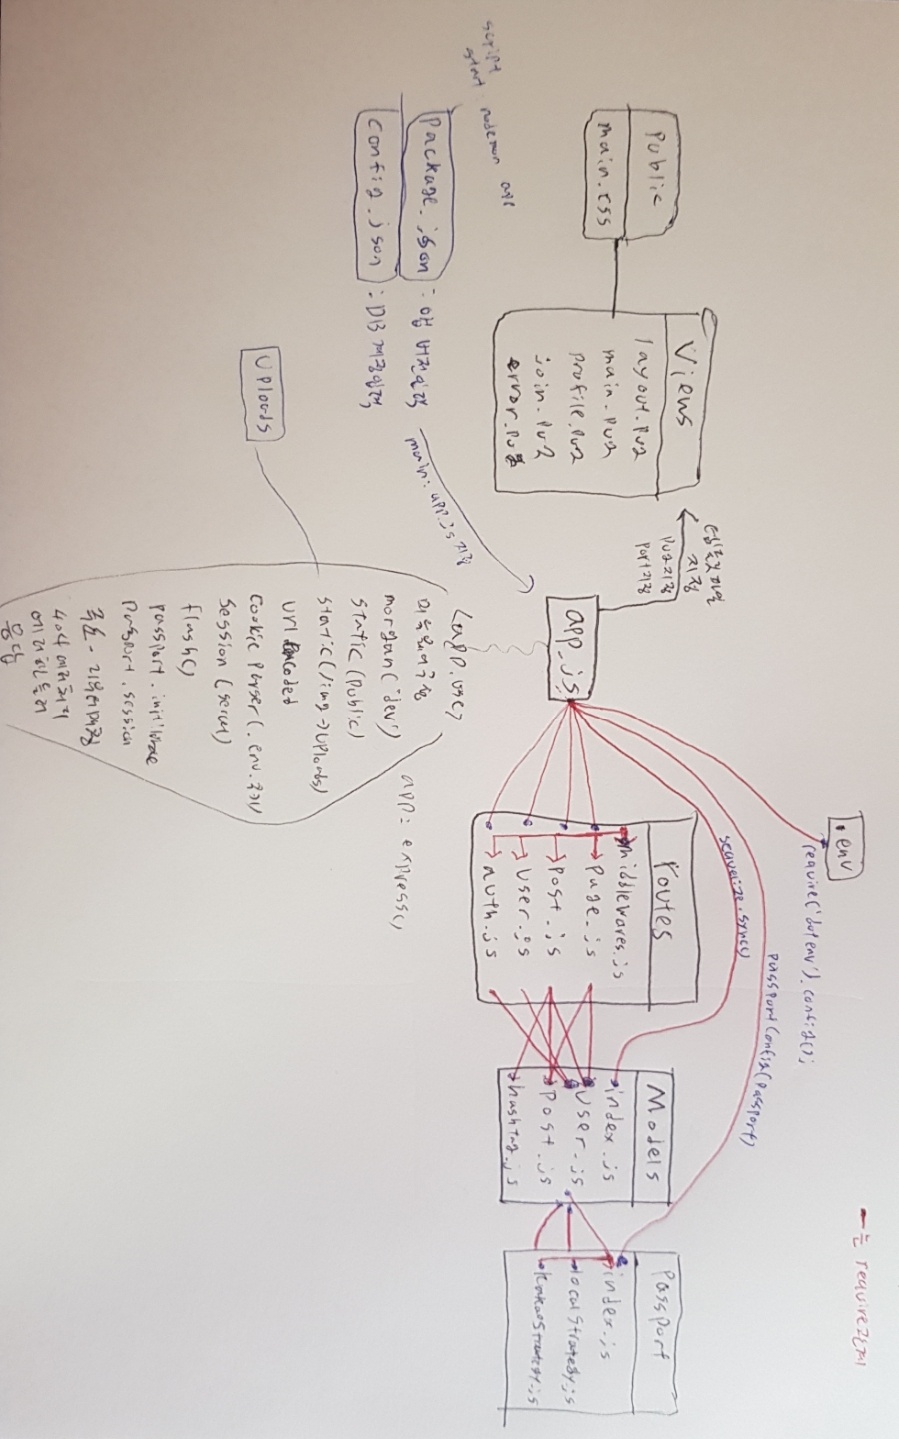 –는 require관계
.env
require('dotenv').config();
passportConfig(passport)
sequelize.sync()
템플릿파일
지정
Pug지정
port지정
Public
main.css
Views
layout.pug
main.pug
profile.pug
join.pug
error.pug
app.js
routes
middlewares.js
page.js
post.js
user.js
auth.js
Models
index.js
user.js
post.js
hashtag.js
Passport
index.js
localStrategy.js
kakaoStrategy.js
script
start nodemon app
package.json : 앱 버전입력
main: app.js지정
config.json : DB계정입력
Uploads
<app.use>
app = express()
미들웨어구성
morgan('dev')
static(public)
static(/img→uploads)
url encoded
cookie Parser(.env.쿠키)
Session (secret)
flash()
passport.initialize
Passport.session
주소-라우터매칭
404 에러처리
에러핸들러
응답